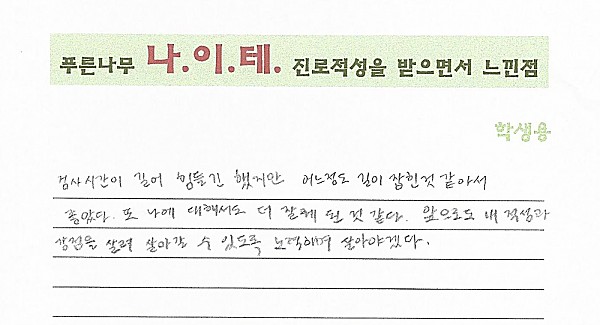 푸른나무 나.이.테. 진로적성을 받으면서 느낀점
학생용
검사시간이 길어 힘들긴 했지만 어느정도 길이 잡힌것 같아서
좋았다. 또 나에 대해서도 더 잘 알게 된 것 같다. 앞으로도 내 적성과
장점을 살려 살아갈 수 있도록 노력하며 살아야겠다.